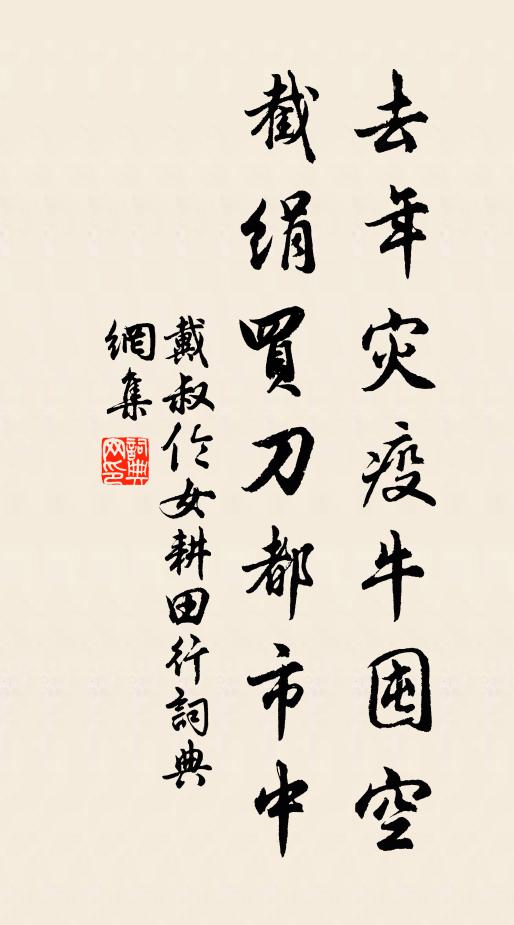 去年灾疫牛囤空
截絹買刀都市中
戴叔伦女耕田行詞典
網集
詞典
网印